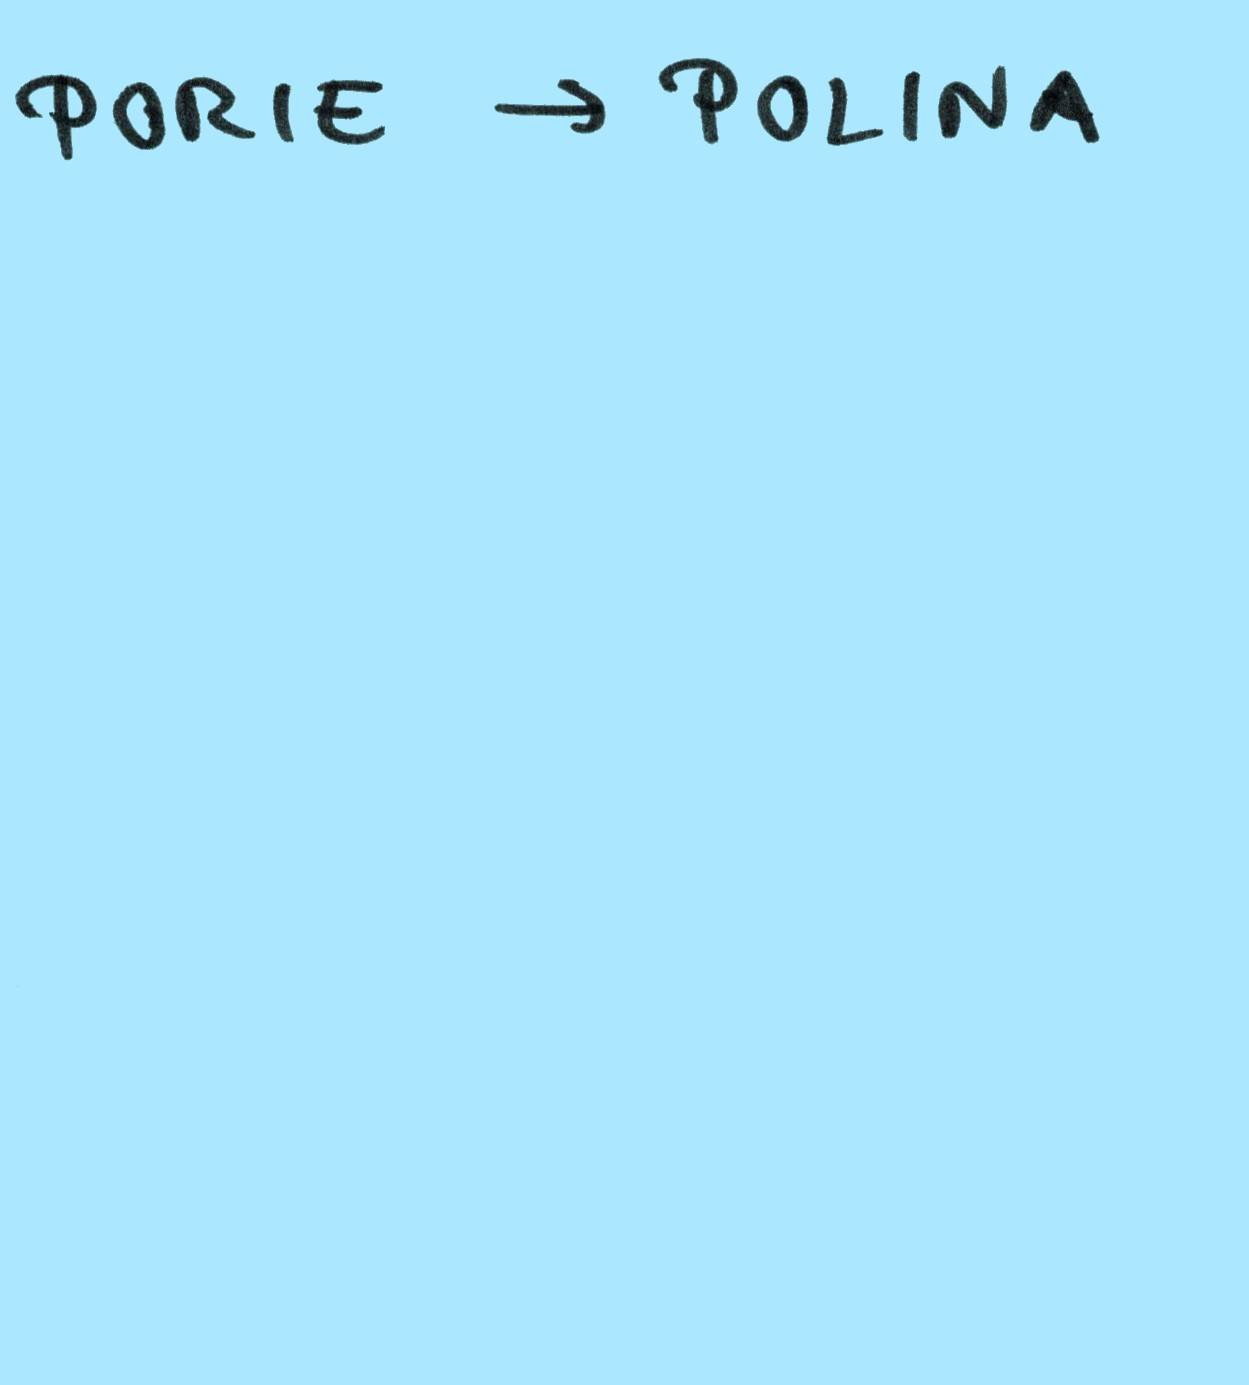 PORIE → POLINA